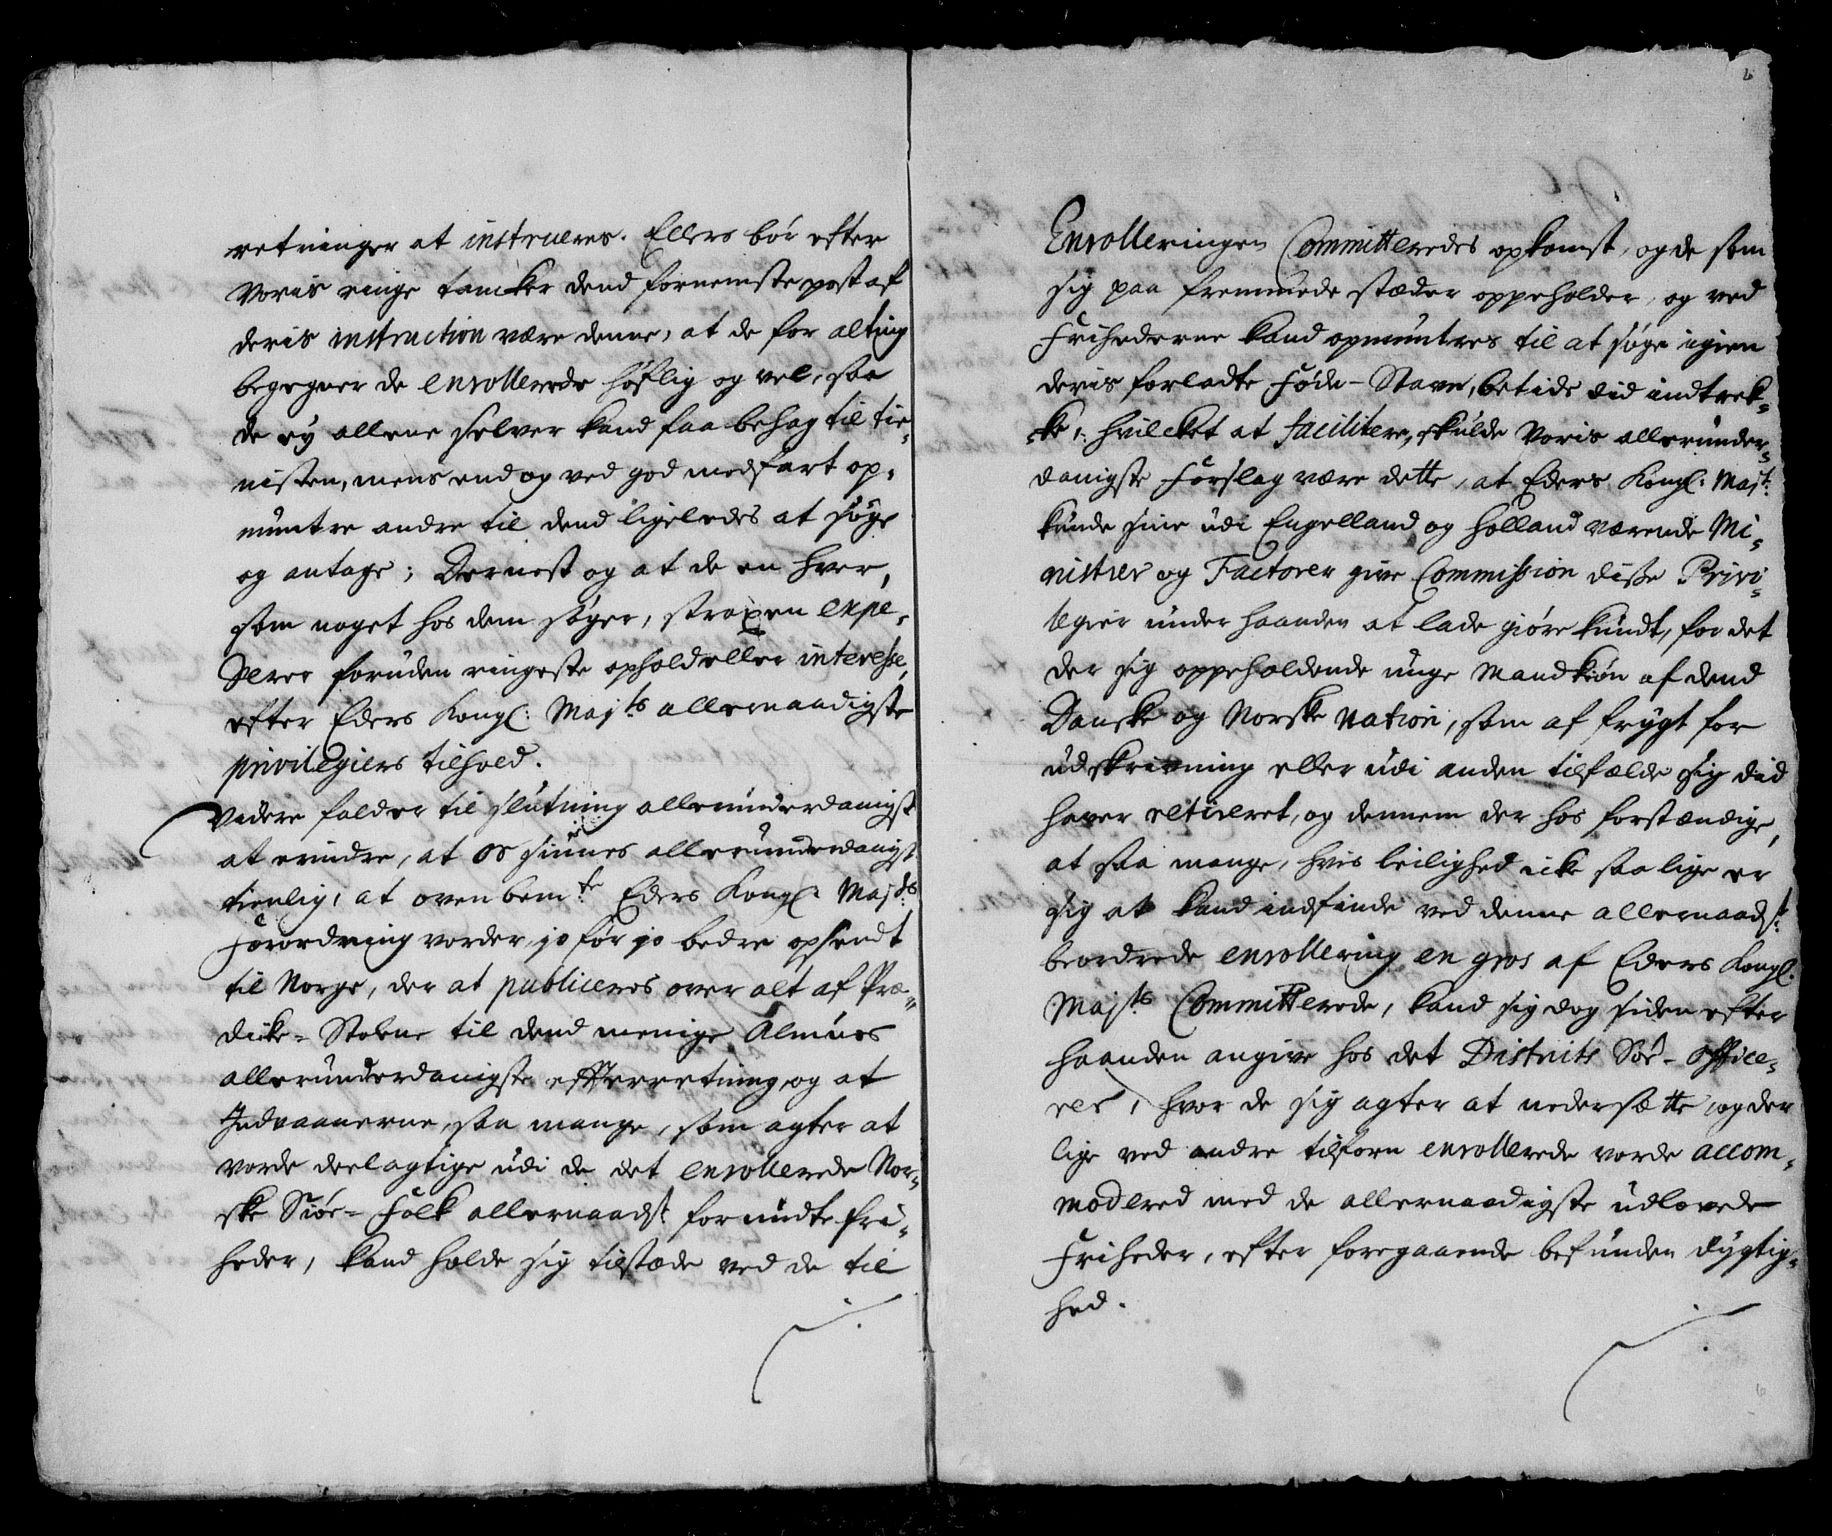 retninger at instrueres. Ellers bör efter
Voris ringe tancker dend fornemste post af
deris instruction være denne, at de for alting
begegner de enrollerede höflig og vel, saa
de ey allene selver kand faa behag til tie-
nisten, mens end og ved god medfart op-
muntre andre til dend ligeledes at søge
og antage; Dernest og at de en hver,
som noget hos dem søger, straxen expe-
derer foruden ringeste ophold eller interesse,
efter Eders Kongl: Maj:ts allernaadigste
privilegiers tilhold.
Videre falder til slutning allerunderdanigst
at erindre, at os siunes allerunderdanigst
tienlig, at ovenbem:te Eders Kongl: Maj:ts
Forordning vorder jo før jo bedre opsendt
til Norge, der at publiceres over alt af Præ-
dicke-Stolene til dend menige Almues
allerunderdanigste effterretning, og at
Indvaanerne, saa mange, som agter at
vorde deelagtige udi de det enrollerede Nor-
ske Siöe-Folk allernaadst forundte fri-
heder, kand holde sig tilstæde ved de til
Enrolleringen Committeredes opkomst, og de som
sig paa fremmede stæder oppeholder, og ved
Frihederne kand opmuntres til at søge igien
deris forladte Føde-Stavn, betids did indtrek-
ke, hvilcket at facilitere, skulde Voris allerunder-
danigste Forslag være dette, at Eders Kongl: Maj:t
kunde sine udi Engelland og Holland værende Mi-
nistrer og Factorer give Commission disse Privi-
legier under haanden at lade giöre kundt, for det
der sig oppeholdende unge Mandkiön af dend
Danske og Norske Nation, som af frygt for
udskrivning eller udi anden tilfælde sig did
haver retireret, og dennem der hos forstændige,
at saa mange, hvis leilighed icke saa lige er
sig at kand indfinde ved denne allernaadst:
beordrede enrollering en gros af Eders Kongl:
Maj:ts Committerede, kand sig dog siden efter
haanden angive hos det Districts Söe-Office-
rer, hvor de sig agter at nedersætte, og der
lige ved andre tilforn enrollerede vorde accom-
modered med de allernaadigste udlovede
Friheder, efter foregaaende befunden dygtig-
hed.